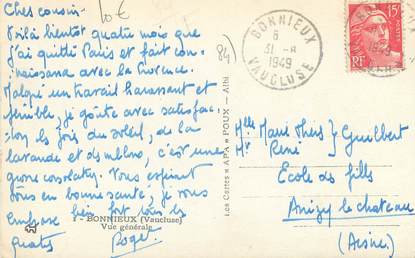 Chers cousins
10€
Voilà bientôt quatre mois que
j'ai quitté Paris et fait con-
naissance avec la Provence.
Malgré un travail harassant et
pénible, je goûte avec satisfac-
tion les joies du soleil, de la
lavande et des melons, c'est une
grosse consolation. Vous espérant
tous en bonne santé, je vous
embrasse bien fort tous les
quatre
Roger
1 - BONNIEUX (Vaucluse)
Vue générale
84)
Les Cartes « APA » POUX - Albi
BONNIEUX
6
31-8
1949
VAUCLUSE
1949
15F
RF
Mlle Marie Thérèse } Guilbert
Mr René
Ecole de filles
Anizy le chateau
(Aisne)